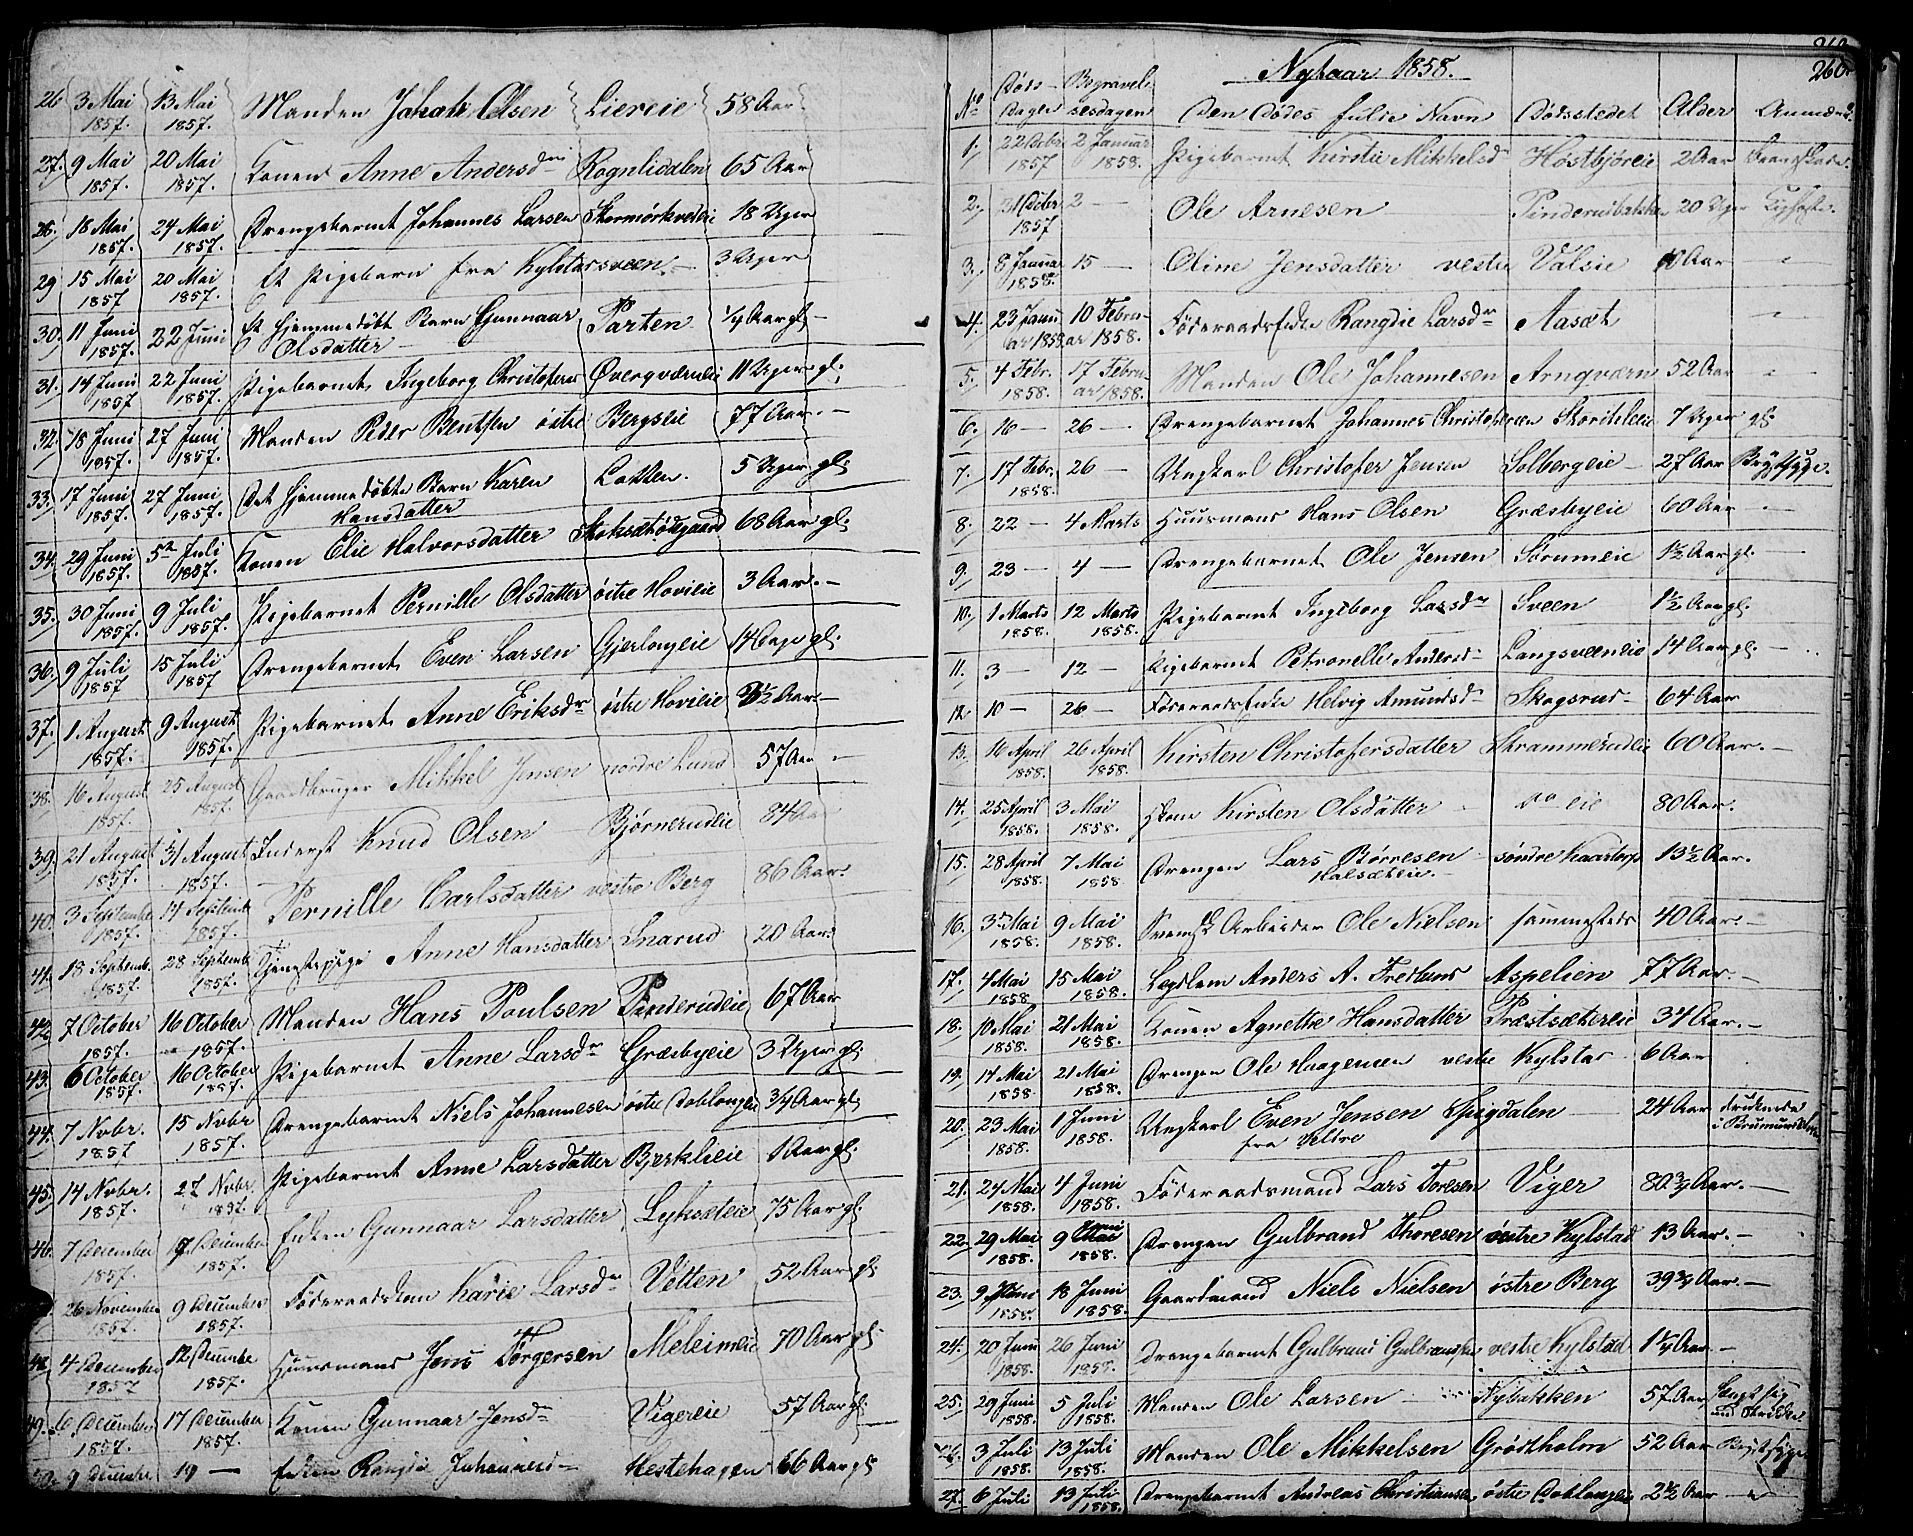 26 3 Mai 13 Mai Manden Johan Olsen Liereie 58 Aar
1857. 1857.
27. 9 Mai 20 Mai Konen Anne Andersdr Rognlidalen 65 Aar
1857. 1857.
28. 18 Mai 24 Mai Drengebarnet Johannes Larsen 18 Uger
1857. 1857.
29 15 Mai 20 Mai Et Pigebarn fra Kylstadsveen 3 Uger
1857 1857.
30. 11 Juni 22 Juni Et hjemmedøbt Barn Gunnaar Parten ¼ Aar gl.
1857. Olsdatter
31. 14 Juni 22 Juni Pigebarnet Ingeborg Christofers Øverqværneie 11 Uger gl.
1857 1857.
32. 18 Juni 27 Juni Manden Peder Bentsen østre Bergseie 77 Aar.
1857. 1857.
33. 17 Juni 27 Juni Det hjemmedøbte Barn Karen Løkken. 5 Uger gl.
1857. 1857. Hansdatter
34. 29 Juni 5te Juli Konen Elie Halvorsdatter Stoksætødegaard 68 Aar gl.
1857. 1857.
35. 30 Juni 9 Juli Pigebarnet Pernille Olsdatter østre Hovieie 3 Aar.
1857. 1857.
36. 9 Juli 15 Juli Drengebarnet Even Larsen Gjerlougeie 14 Dage gl.
1857 1857
37. 1 August 9 August Pigebarnet Anne Eriksdr østre Hovieie 3½ Aar.
1857. 1857.
38. 16 August 25 August Gaardbruger Mikkel Jensen nordre Lund 57 Aar
1857. 1857.
39. 21 August 31 August Inderst Knud Olsen Bjørnerudeie 84 Aar
1857. 1857.
40. 3 September 14 September Pernille Carlsdatter vestre Berg 86 Aar.
1857. 1857.
41. 18 Septemb. 28 Septemb. Tjenestepige Anne Hansdatter Snarud 20 Aar.
1857. 1857.
42. 7 October 16 October Manden Hans Poulsen Pinderudeie 67 Aar
1857. 1857.
43. 6 October 16 October Pigebarnet Anne Larsdr Græsbyeie 3 Uger gl.
1857. 1857.
44. 7 Nvbr. 15 Nvbr Drengebarnet Niels Johannesen østre Doblougeie ¾ Aar gl.
1857 1857.
45. 14 Nvbr. 27 Nvbr. Pigebarnet Anne Larsdatter Bjerklieie 1 Aar gl.
1857. 1857.
46. 7 December 17 December Enken Gunnaar Larsdatter Lyksæteie 75 Aar gl.
1857. 1857.
26 November 9 December Føderaadskone Karie Larsdr Vetten 52 Aar gl.
1857. 1857.
48 4 December 12 Decembe Huusmand Jens Törgersen Meleimeie 70 Aar gl.
1857 1857.
49. 6 December 17 December Konen Gunnaar Jensdr Vigereie 57 Aar gl.
1857. 1857.
50. 9 Decembe 19 — Enken Rangdi Johannesd Hestehagen 66 Aar gl.
Nytaar 1858. 260.
No Døds- Begravel- Den Dødes fulde Navn Dødsstedet Alder Anmærkn.
Dagen sesdagen
1. 22 Debr 2 Januar Pigebarnet Kirstie Mikkelsdr Høstbjøreie 2 Aar
1857 1858.
2. 31 Debr 2 — Ole Arnesen Pinderudbakken 20 Uger
1857
3. 8 Januar 15 — Oline Jensdatter vestre Valsie 10 Aar
1858.
4. 23 Janu 10 Febru- Føderaadsenke Rangdie Larsdr Aasæt
ar 1858. ar 1858.
5. 4 Febr. 17 Febru Manden Ole Johannesen Arnqværn 52 Aar
1858. ar 1858.
6. 16 — 26 — Drengebarnet Johannes Christofersen 7 Uger gl.
7. 17 Febr. 26 — Ungkarl Christofer Jensen Solbergeie 27 Aar Brystsyge.
1858.
8. 22 — 4 Marts Huusmand Hans Olsen Græsbyeie 60 Aar
9. 23 — 4 — Drengebarnet Ole Jensen Sørumeie 1½ Aar gl.
10. 1 Marts 12 Marts Pigebarnet Ingeborg Larsdr Sveen 1½ Aar gl.
1858. 1858.
11. 3 — 12 — Pigebarnet Petronelle Andersd Langsveeneie 14 Aar gl.
12. 10 — 26 — Føderaadsenke Helvig Amundsd Skogsrud 64 Aar
13. 16 April 26 April Kirsten Christofersdatter Strammerudeie 60 Aar.
1858. 1858.
14. 25 April 3 Mai Kone Kirsten Olsdatter do eie 80 Aar.
1858. 1858.
15. 28 April 7 Mai Drengen Lars Børresen søndre Kaartorp 13½ Aar.
1858. 1858 Halsæteie
16. 3die Mai 9 Mai Svensk Arbeider Ole Nielsen sammesteds 40 Aar.
1858. 1858.
17. 4 Mai 15 Mai Lægdslem Anders A. Fredlund Aspelien 77 Aar.
1858. 1858.
18. 10 Mai 21 Mai Konen Agnethe Hansdatter Præstsætereie 34 Aar.
1858. 1858.
19. 14 Mai 21 Mai Drengen Ole Haagensen vestre Kylstad 6 Aar
1858 1858.
20. 23 Mai 1 Juni Ungkarl Even Jensen Spigdalen 24 Aar druknede
1858. 1858. fra Veldre i Brumundelven
21. 24 Mai 4 Juni Føderaadsmand Lars Toresen Viger 80¾ Aar.
1858. 1858.
22. 29 Mai 9 Juni Drengen Gulbrand Thoresen østre Kylstad 13 Aar.
1858. 1858.
23. 9 Juni 18 Juni Gaardmand Niels Nielsen østre Berg 39¾ Aar.
1858. 1858.
24. 20 Juni 26 Juni Drengebarnet Gulbrand Gulbrandsen vestre Kylstad 1¼ Aar.
1858. 1858.
25. 29 Juni 5 Juli Manden Ole Larsen Nybakken 57 Aar hængt sig
1858. 1858.
26. 3 Juli 13 Juli Manden Ole Mikkelsen Grødtholm 52 Aar Brystsyge
1858. 1858.
27. 6 Juli 13 Juli Drengebarnet Andreas Christiansen østre Doblougeie 2½ Aar
1858.